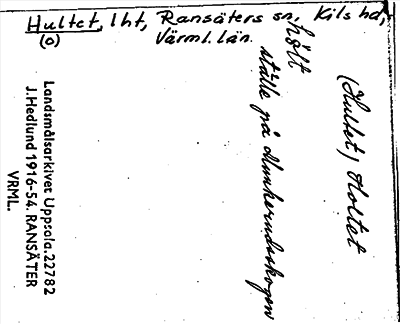 Hultet, lht, Ransäters sn, Kils hd,
(o) Värml. län.
(Hultet) Holtet
hòlt
ställe på Munkerudsskogen
Landsmålsarkivet Uppsala. 22782
J. Hedlund 1916-54. RANSÄTER
VRML.